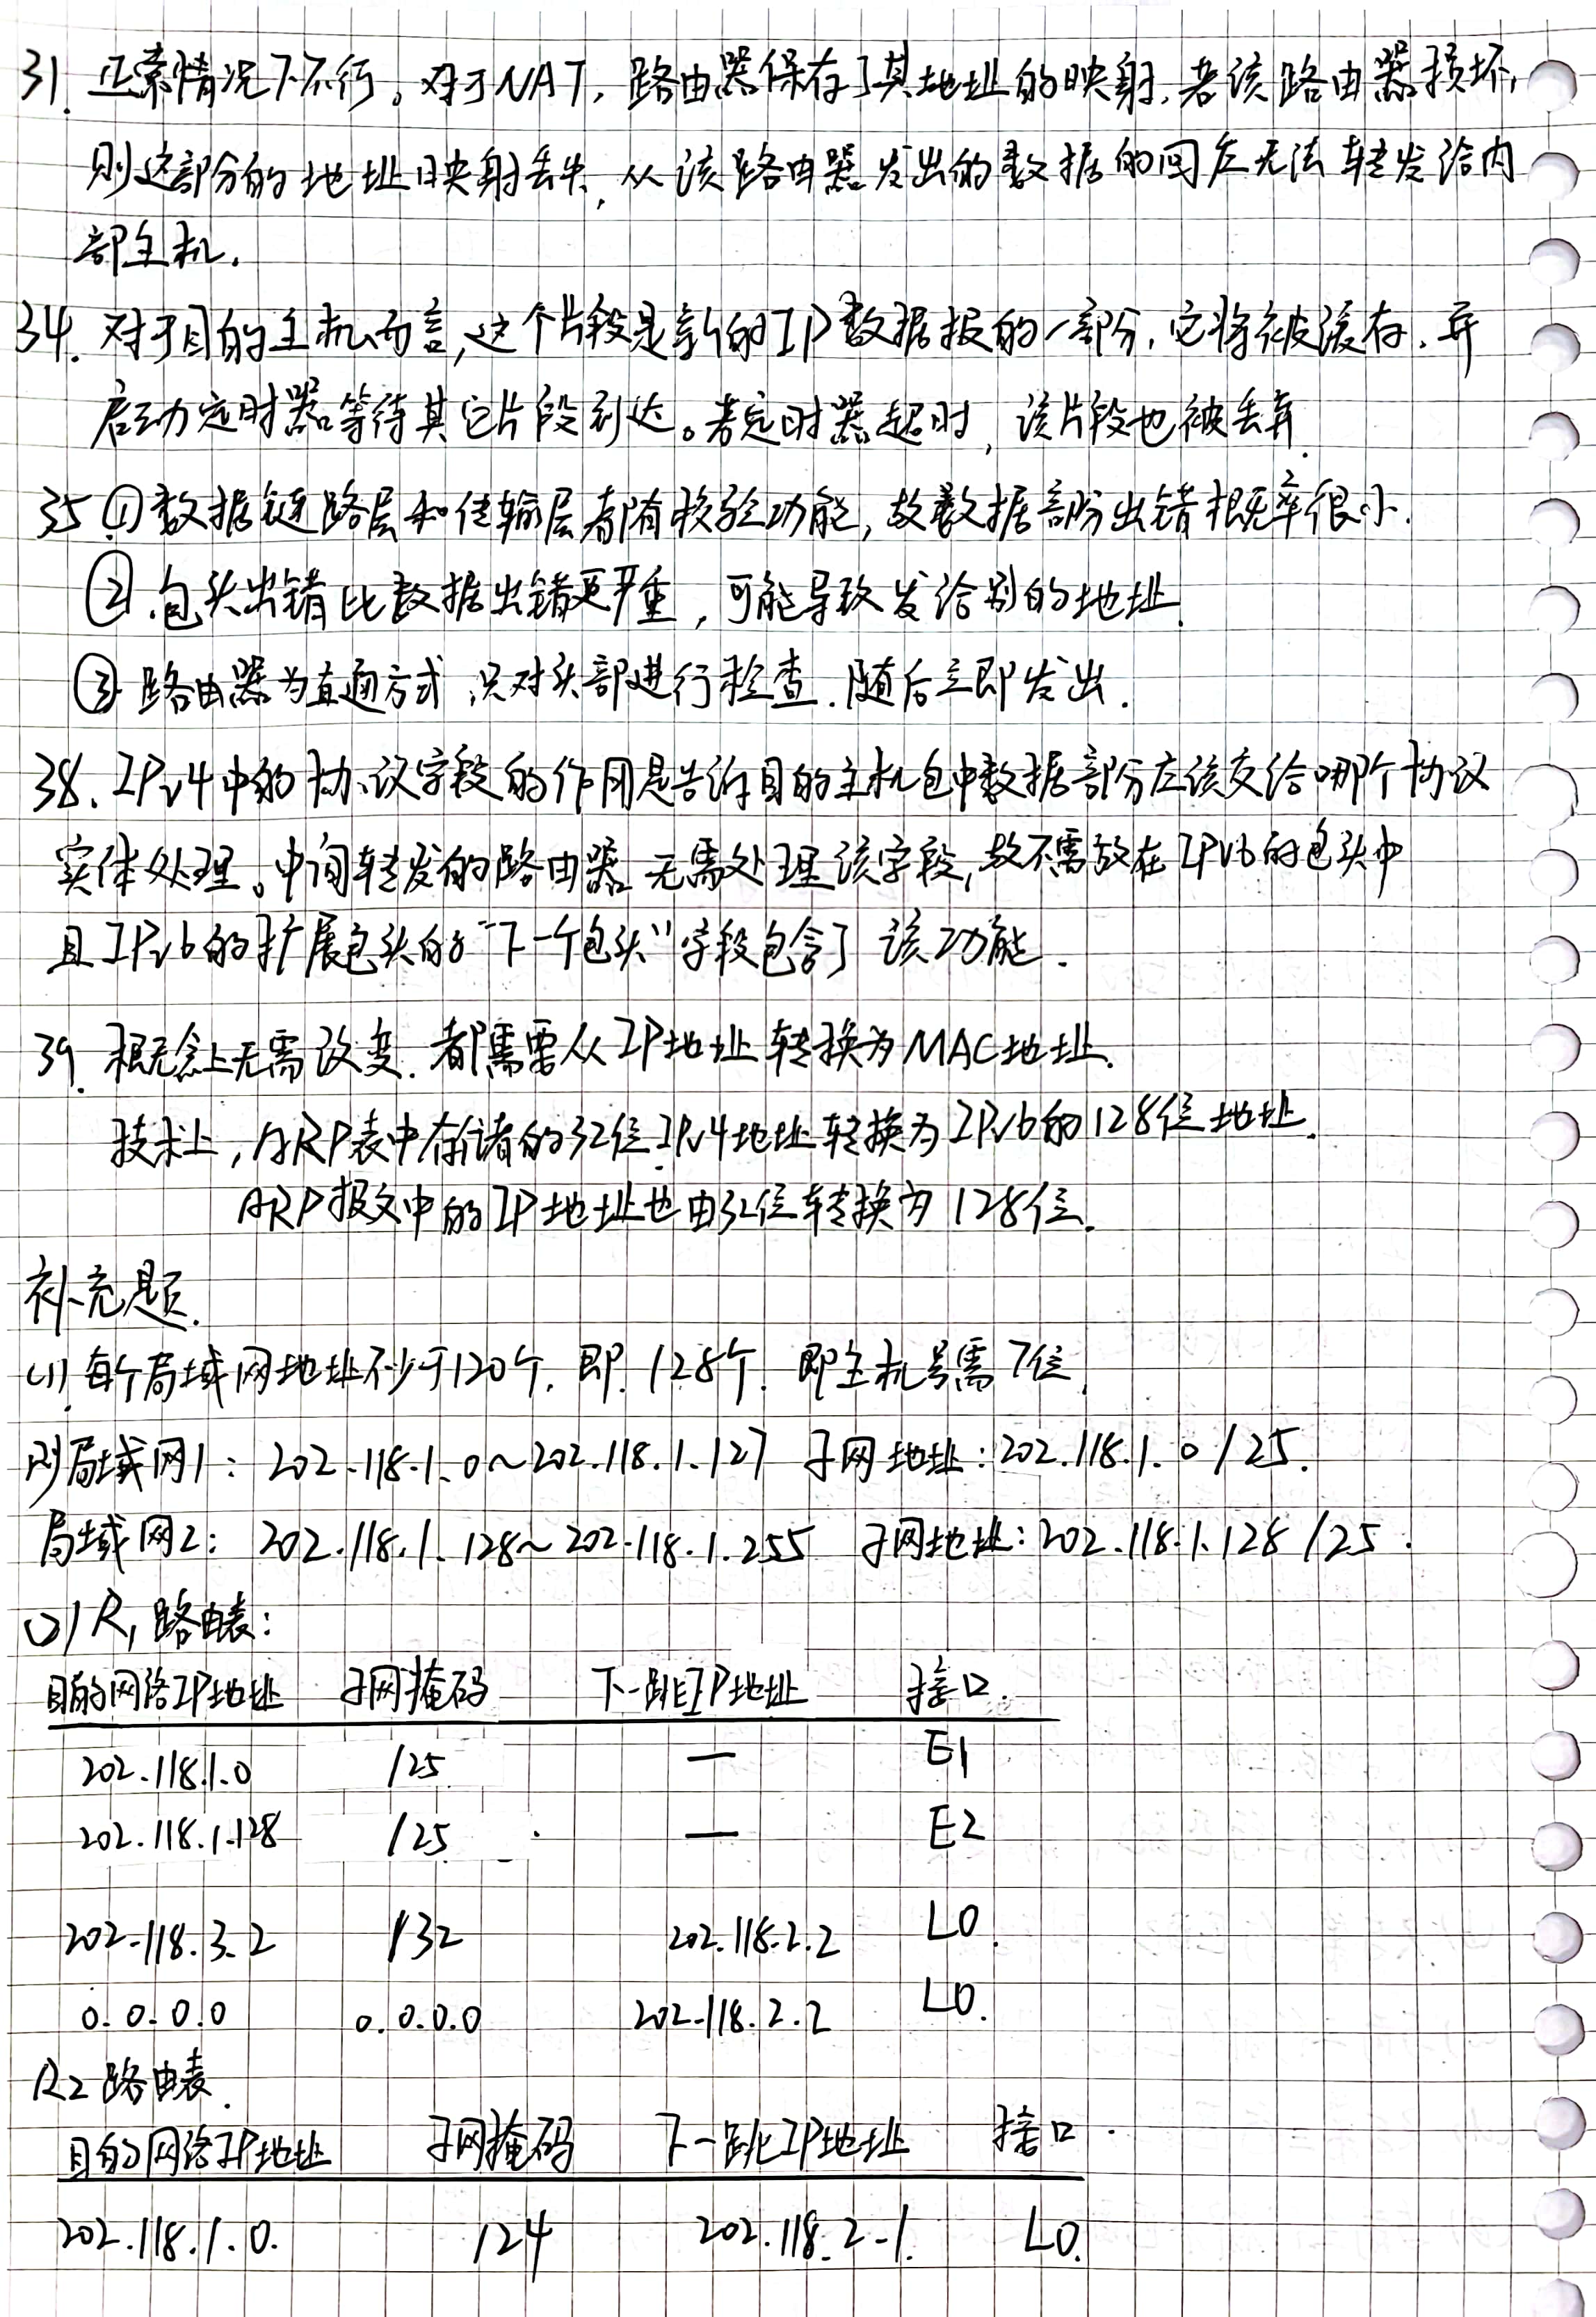 31. 正常情况下不行。对于NAT, 路由器保存了其地址的映射, 若该路由器损坏,
则这部分的地址映射丢失, 从该路由器发出的数据的回应无法转发给内
部主机.
34. 对于目的主机而言, 这个片段是新的IP数据报的一部分, 它将被缓存, 并
启动定时器等待其它片段到达。若定时器超时, 该片段也被丢弃.
35 ①数据链路层和传输层都有校验功能, 故数据部分出错概率很小.
② 包头出错比数据出错更严重, 可能导致发给别的地址.
③ 路由器为直通方式, 只对头部进行检查. 随后立即发出.
38. IPv4中的协议字段的作用是告诉目的主机包中数据部分应该交给哪个协议
实体处理。中间转发的路由器无需处理该字段, 故不需放在IPv6的包头中
且IPv6的扩展包头的“下一个包头”字段包含了该功能.
39. 概念上无需改变. 都需要从IP地址转换为MAC地址.
技术上, ARP表中存储的32位IPv4地址转换为IPv6的128位地址.
ARP报文中的IP地址也由32位转换为128位.
补充题.
(1) 每个局域网地址不少于120个, 即128个. 即主机号需7位.
则局域网1: 202.118.1.0~202.118.1.127 子网地址: 202.118.1.0/25.
局域网2: 202.118.1.128~202.118.1.255 子网地址: 202.118.1.128/25.
(2) R1路由表:
目的网络IP地址 子网掩码 下一跳IP地址 接口.
202.118.1.0 /25 — E1
202.118.1.128 /25 — E2
202.118.3.2 /32 202.118.2.2 L0.
0.0.0.0 0.0.0.0 202.118.2.2 L0.
R2路由表.
目的网络IP地址 子网掩码 下一跳IP地址 接口.
202.118.1.0. /24 202.118.2.1. L0.